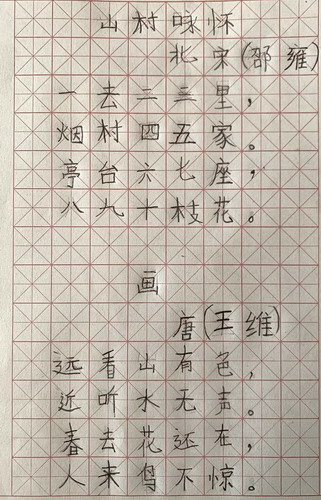 山村咏怀
北宋(邵雍)
一去二三里,
烟村四五家。
亭台六七座,
八九十枝花。
画
唐(王维)
远看山有色,
近听水无声。
春去花还在,
人来鸟不惊。